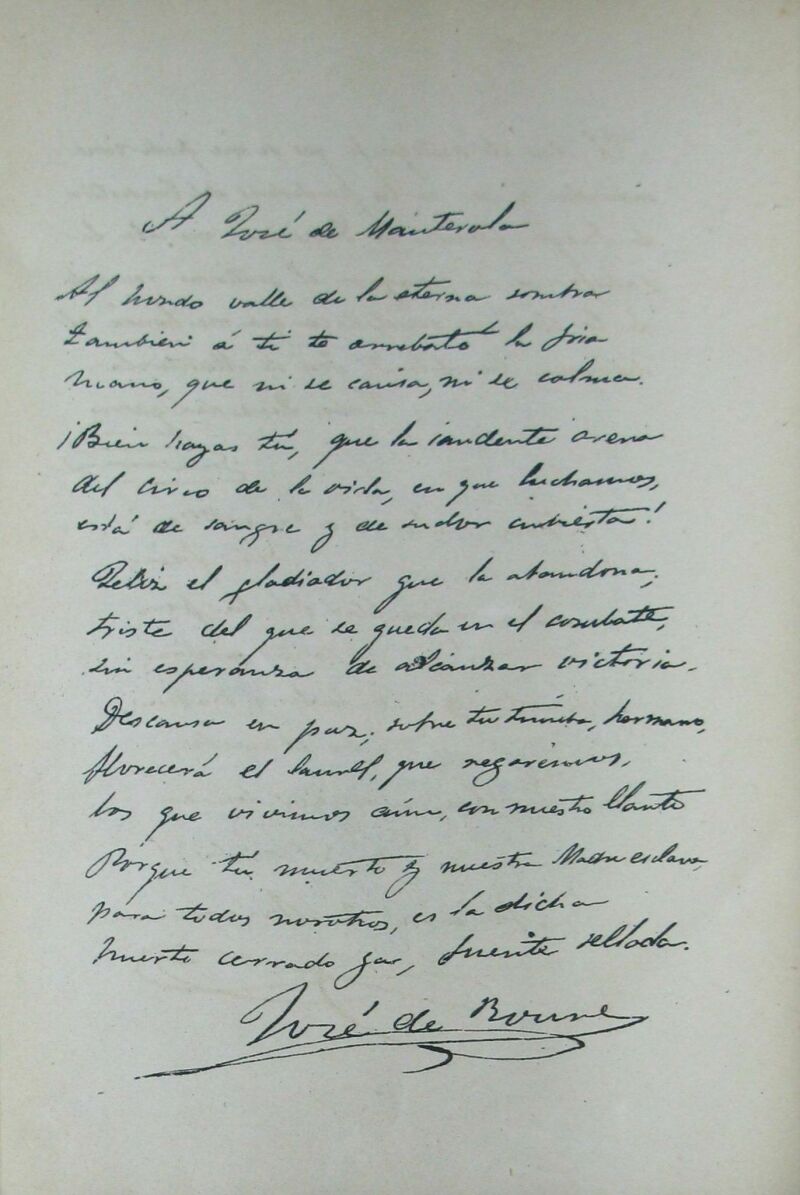 A José de Manterola
Al hondo valle de la eterna sombra
también á ti te arrebató la fria
mano, que ni se cansa, ni se calma.
¡Bien hayas tú, que la candente arena
del circo de la vida, en que luchamos,
está de sangre y de sudor cubierta!
Feliz el gladiador que la abandona;
triste del que se queda en el combate,
sin esperanza de alcanzar victoria.
Descansa en paz; sobre tu tumba, hermano,
florecerá el laurel, que regaremos,
los que vivimos aún, con nuestro llanto
Porque tú muerto y nuestra Madre esclava,
para todos nosotros, es la dicha
huerto cerrado ya, fuente sellada.
José de